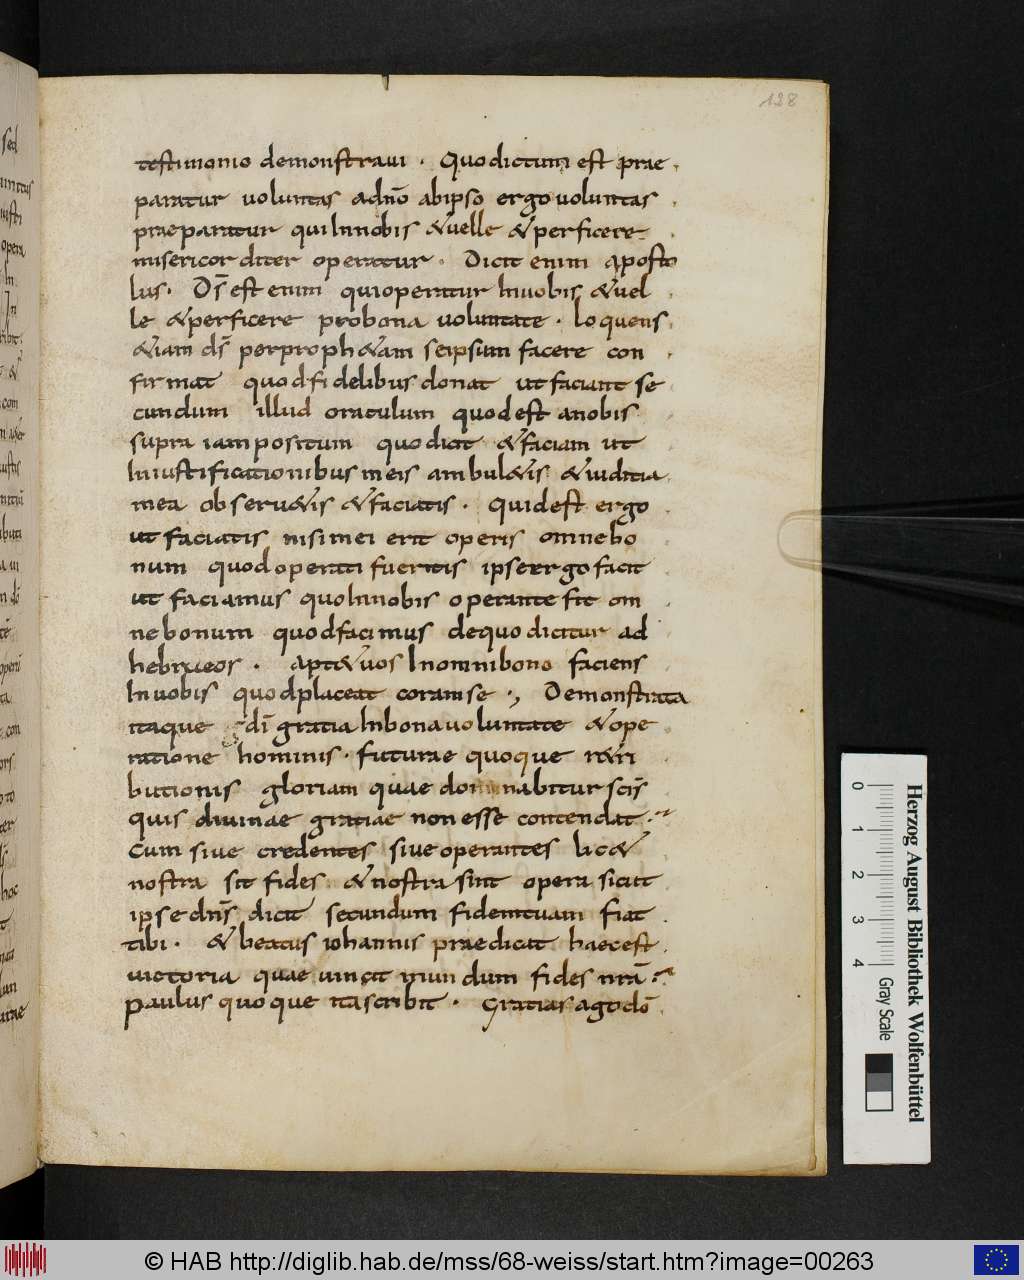 128
testimonio demonstravi . Quo dictum est prae
paratur voluntas a dno ab ipso ergo voluntas
praeparatur qui in nobis & velle & perficere
misericorditer operatur . Dicit enim aposto
lus . Ds est enim qui operatur in vobis & vel
le & perficere pro bona voluntate . loquens
&iam ds per proph&am se ipsum facere con
firmat quod fidelibus donat ut faciant se
cundum illud oraculum quod est a nobis
supra iam positum quo dicit & faciam ut
in iustificationibus meis ambul&is & iuditia
mea observ&is & faciatis . quid est ergo
ut faciatis nisi mei erit operis omne bo
num quod operati fueritis ipse ergo facit
ut faciamus quo in nobis operante fit om
ne bonum quod facimus de quo dicitur ad
hebraeos . apt& vos in omni bono faciens
in vobis quod placeat coram se ., Demonstrata
itaque di gratia in bona voluntate & ope
ratione hominis . futurae quoque r&ri
butionis gloriam quae dominabitur scis
quis divinae gratiae non esse contendat .
Cum sive credentes sive operantes lic&
nostra sit fides & nostra sint opera sicut
ipse dns dicit secundum fidem tuam fiat
tibi . & beatus iohannis praedicat haec est
victoria quae vincit mundum fides nra .
paulus quoque ita scribit . Gratias ago do
0 1 2 3 4
Gray Scale
Herzog August Bibliothek Wolfenbüttel
© HAB http://diglib.hab.de/mss/68-weiss/start.htm?image=00263